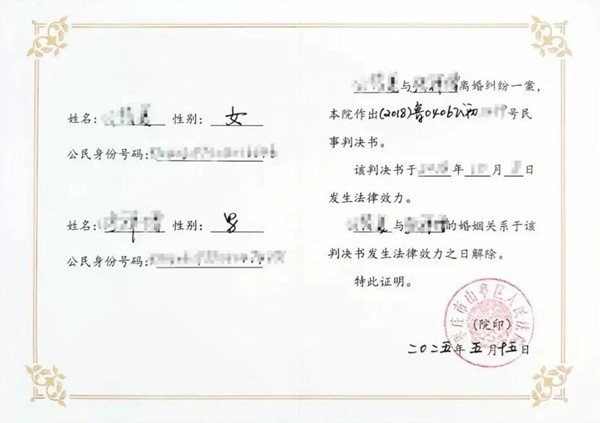 姓名： 性别： 女
公民身份号码：
姓名： 性别： 男
公民身份号码：
与 离婚纠纷一案，
本院作出(2018)鲁0406民初 号民
事判决书。
该判决书于 年10月 日
发生法律效力。
与 的婚姻关系于该
判决书发生法律效力之日解除。
特此证明。
枣庄市山亭区人民法院
(院印)
二〇二五年五月十五日